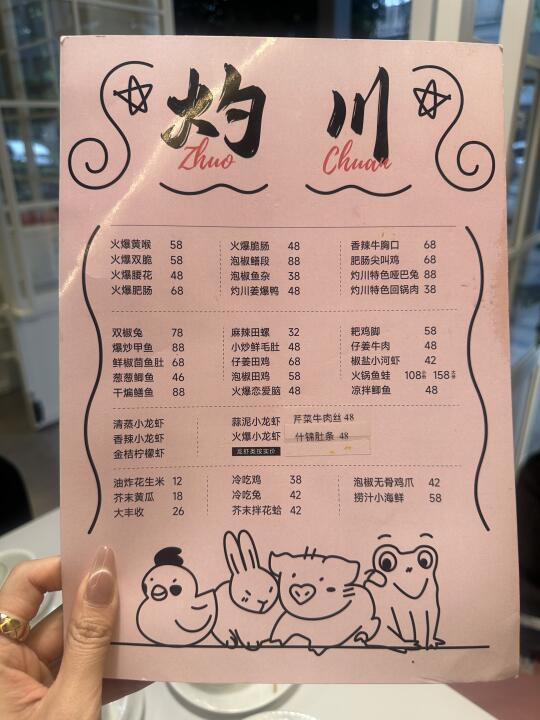 灼川
Zhuo Chuan
火爆黄喉 58 火爆脆肠 48 香辣牛胸口 68
火爆双脆 58 泡椒鳝段 88 肥肠尖叫鸡 68
火爆腰花 48 泡椒鱼杂 38 灼川特色哑巴兔 88
火爆肥肠 68 灼川姜爆鸭 48 灼川特色回锅肉 38
双椒兔 78 麻辣田螺 32 耙鸡脚 58
爆炒甲鱼 88 小炒鲜毛肚 48 仔姜牛肉 48
鲜椒茴鱼肚 68 仔姜田鸡 68 椒盐小河虾 42
葱葱鲫鱼 46 泡椒田鸡 58 火锅鱼蛙 108 158
干煸鳝鱼 88 火爆恋爱脑 48 凉拌鲫鱼 48
清蒸小龙虾 蒜泥小龙虾 芹菜牛肉丝 48
香辣小龙虾 火爆小龙虾 什锦肚条 48
金桔柠檬虾 龙虾类按实价
油炸花生米 12 冷吃鸡 38 泡椒无骨鸡爪 42
芥末黄瓜 18 冷吃兔 42 捞汁小海鲜 58
大丰收 26 芥末拌花蛤 42